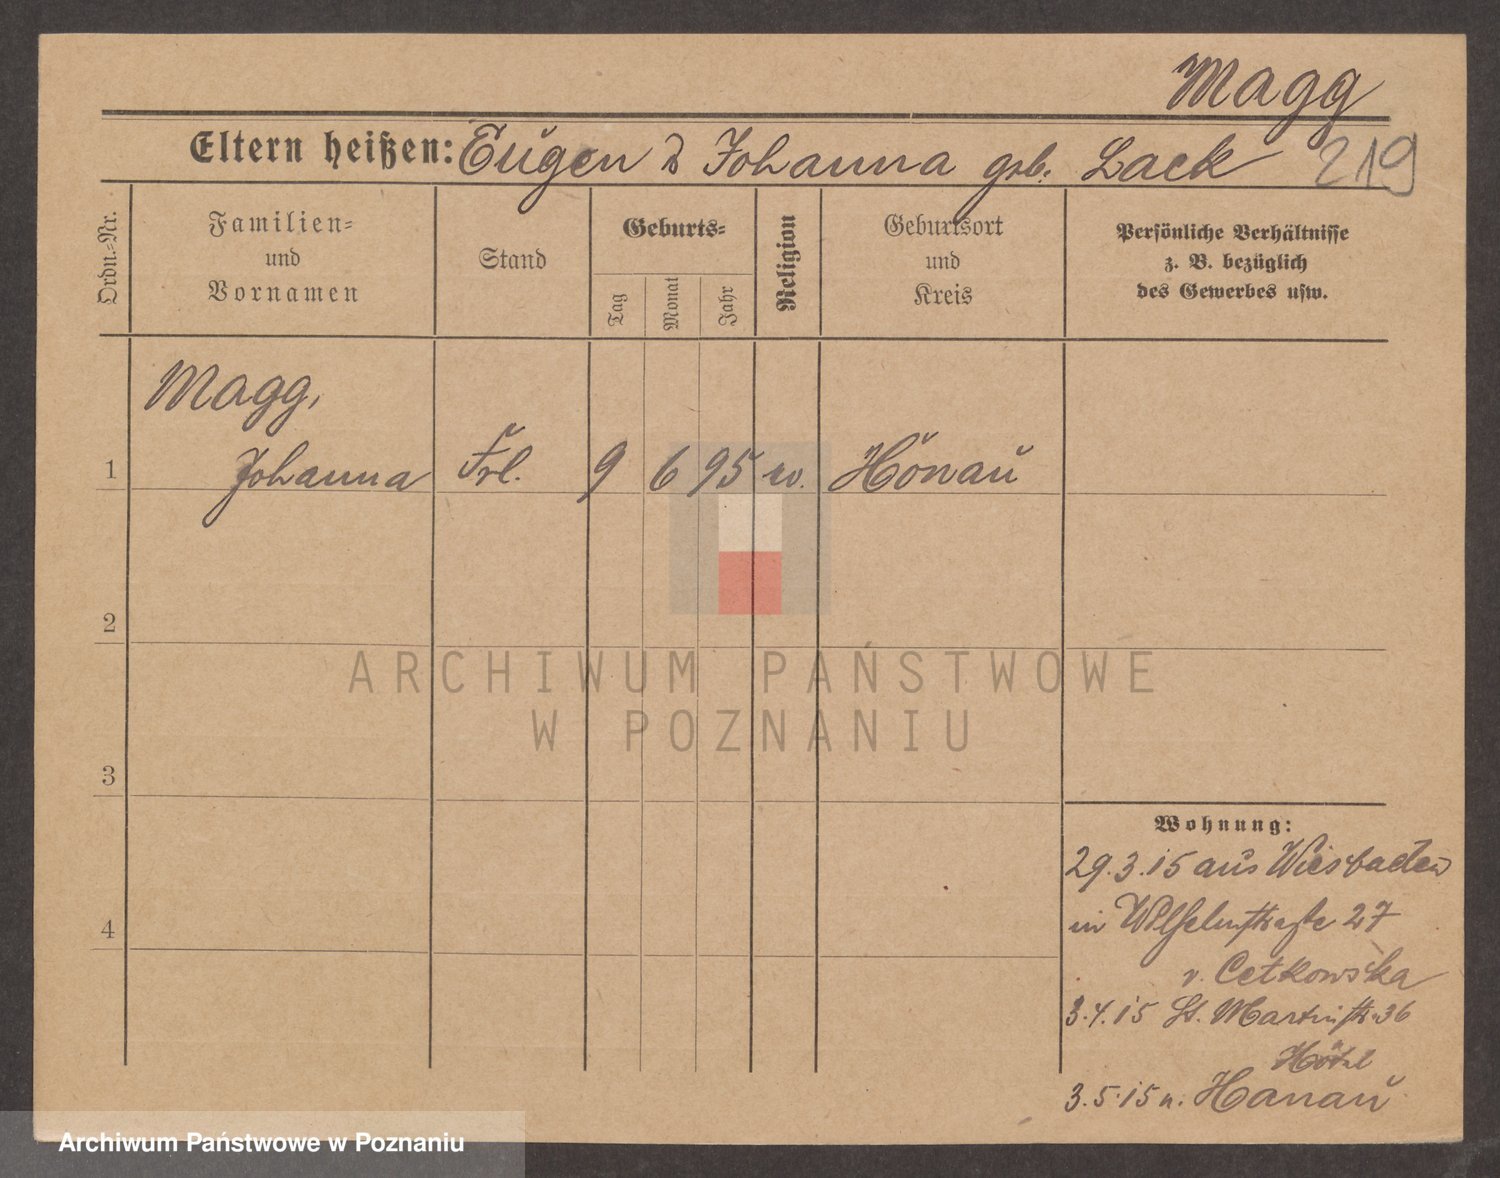 Magg
Eltern heißen: Eugen & Johanna geb. Lack
219
Ordn.-Nr.
Familien-
und
Vornamen
Stand
Geburts-
Tag
Monat
Jahr
Religion
Geburtsort
und
Kreis
Persönliche Verhältnisse
z. B. bezüglich
des Gewerbes usw.
Magg,
1 Johanna Frl. 9 6 95 ev. Hönau
2
3
4
ARCHIWUM PAŃSTWOWE
W POZNANIU
Wohnung:
29.3.15 aus Wiesbaden
in Wilhelmstraße 27
v. Cetkowska
3.4.15 St. Martinstr. 36
Hötel
3.5.15 n. Hanau
Archiwum Państwowe w Poznaniu